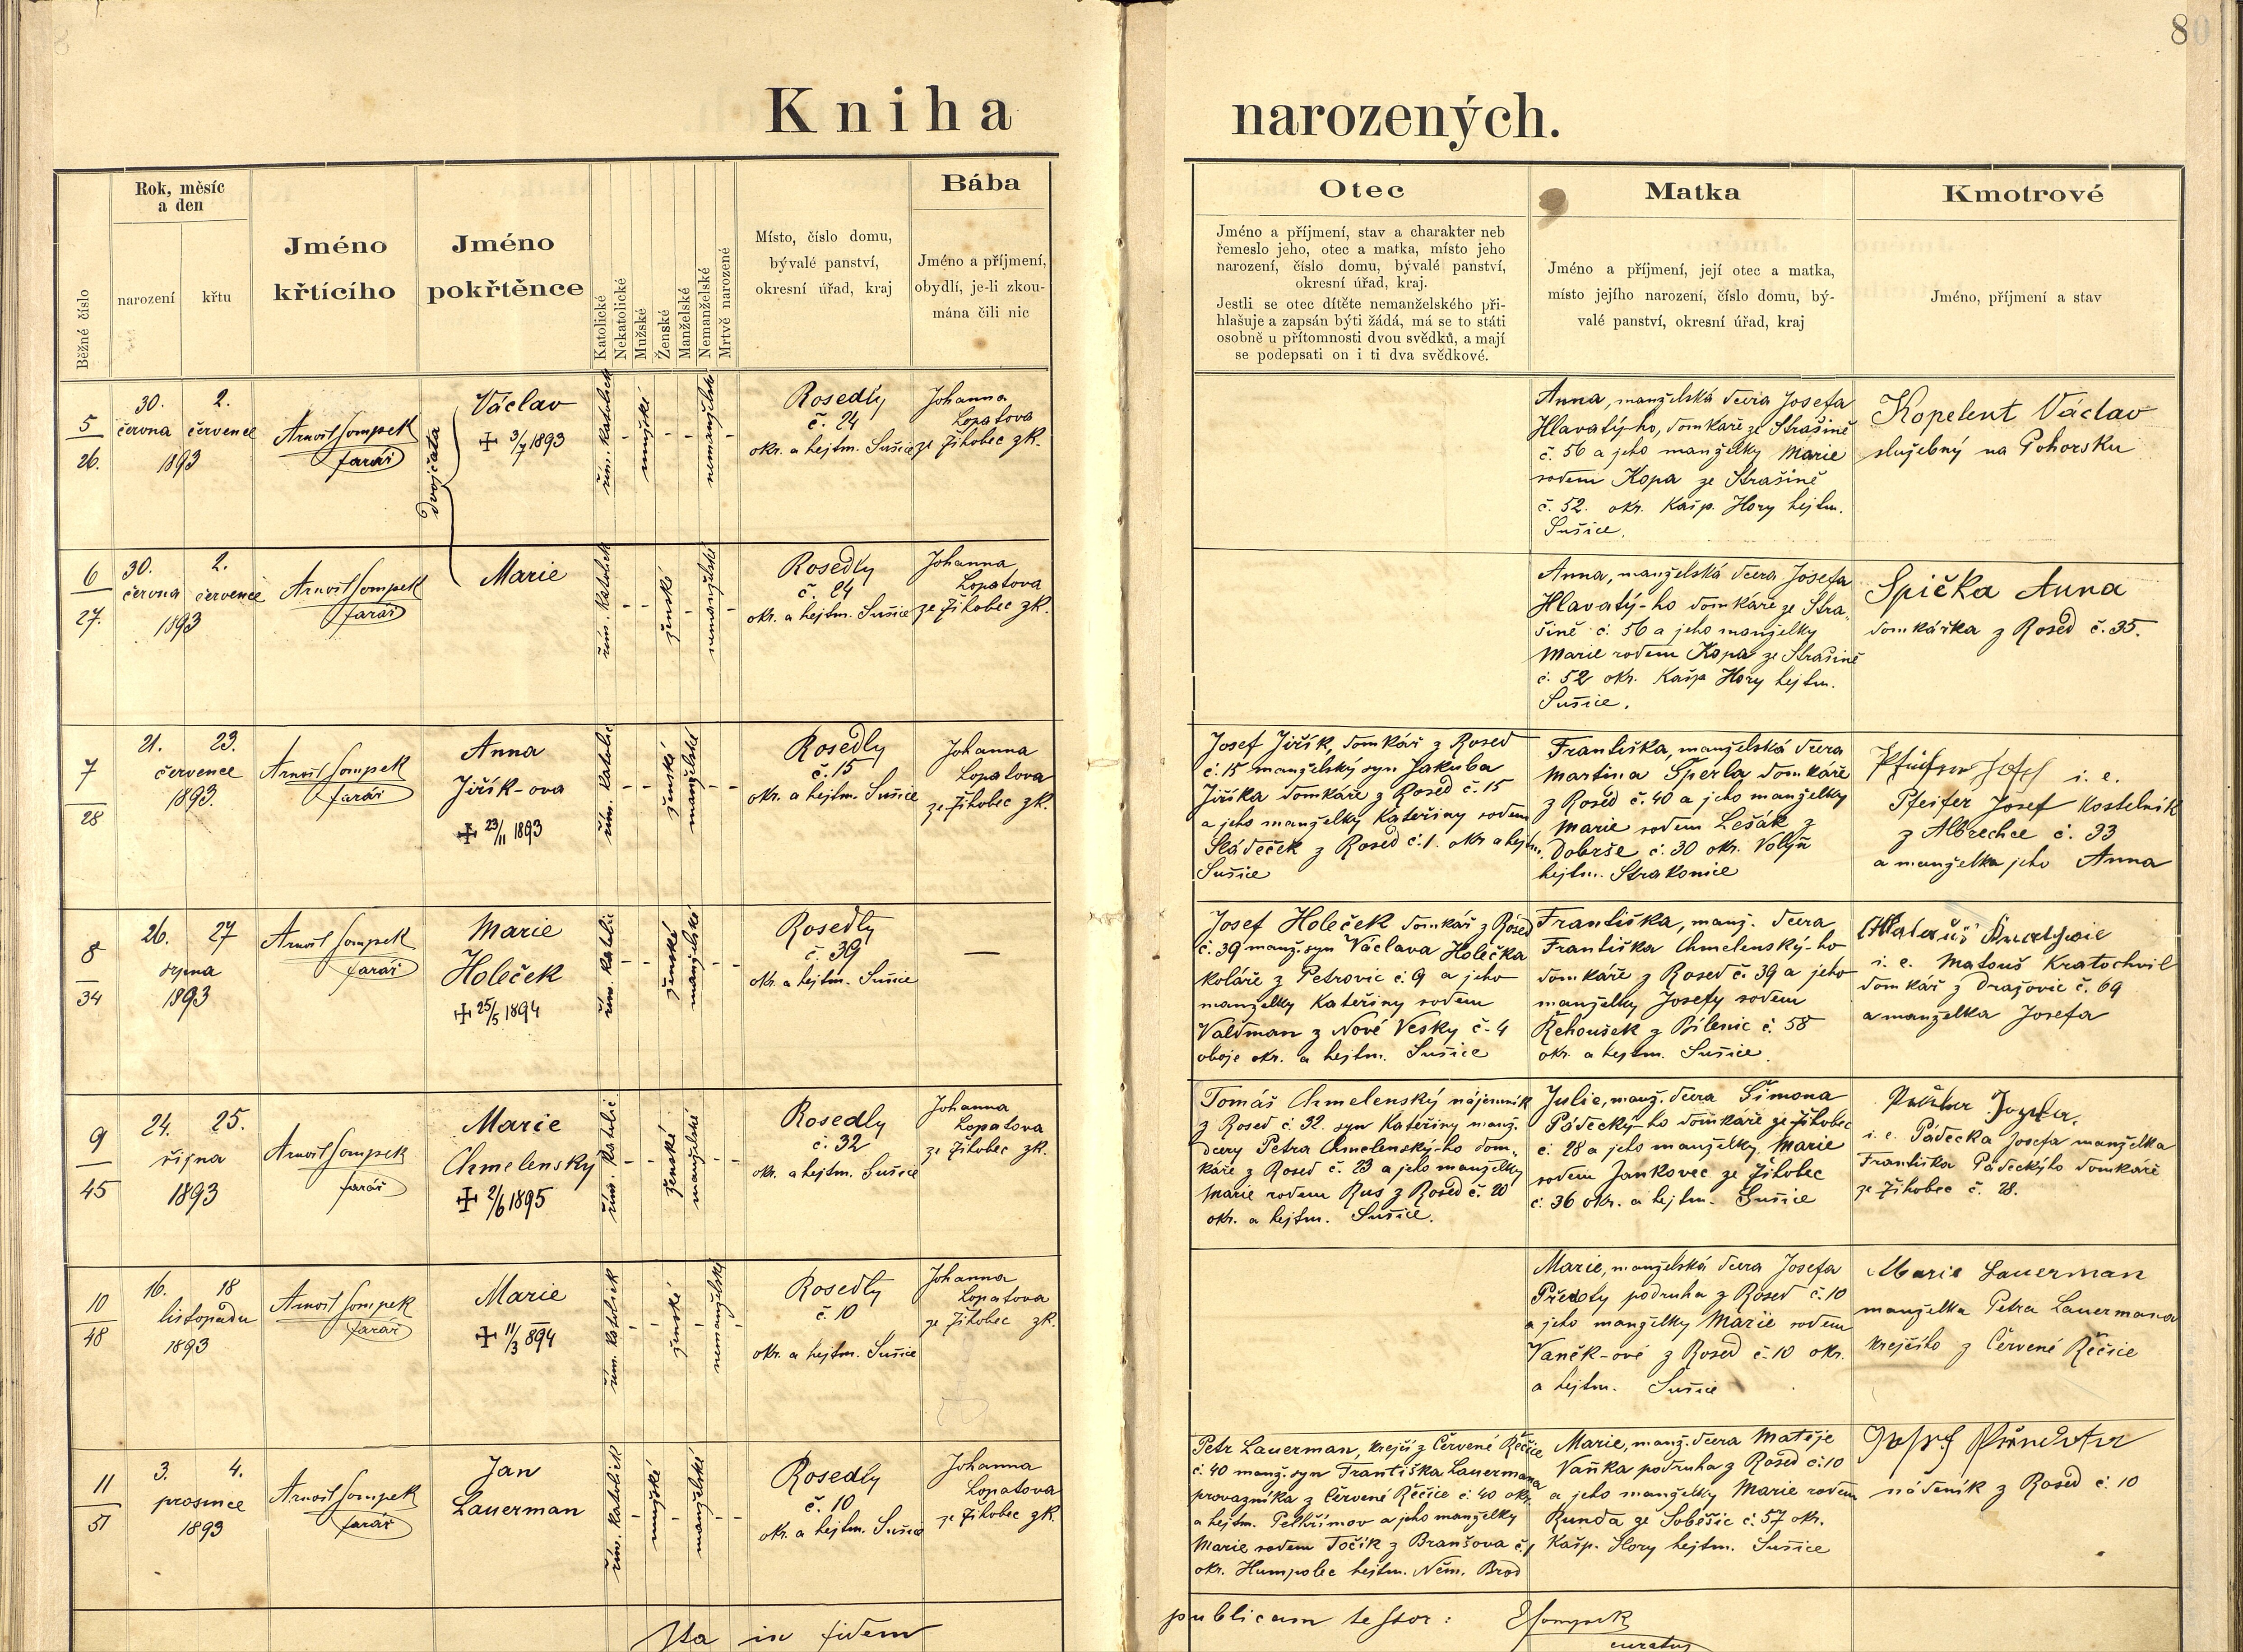 80
Kniha narozených.
Běžné číslo
Rok, měsíc
a den
narození
křtu
Jméno
křtícího
Jméno
pokřtěnce
Katolické
Nekatolické
Mužské
Ženské
Manželské
Nemanželské
Mrtvě narozené
Místo, číslo domu,
bývalé panství,
okresní úřad, kraj
Bába
Jméno a příjmení,
obydlí, je-li zkou-
mána čili nic
Otec
Jméno a příjmení, stav a charakter neb
řemeslo jeho, otec a matka, místo jeho
narození, číslo domu, bývalé panství,
okresní úřad, kraj.
Jestli se otec dítěte nemanželského při-
hlašuje a zapsán býti žádá, má se to státi
osobně u přítomnosti dvou svědků, a mají
se podepsati on i ti dva svědkové.
Matka
Jméno a příjmení, její otec a matka,
místo jejího narození, číslo domu, bý-
valé panství, okresní úřad, kraj
Kmotrové
Jméno, příjmení a stav
5
26.
30. 2.
června července
1893
Arnošt Sompek
farář
dvojčata
Václav
+ 3/7 1893
řím. katolick
mužské
nemanželské
Rosedly
č. 24
okr. a hejtm. Sušice
Johanna
Lopatova
ze Žihobec zk.
Anna, manželská dcera Josefa
Hlavatýho, domkáře ze Strašině
č. 56 a jeho manželky Marie
rodem Kopa ze Strašině
č. 52. okr. Kašp. Hory hejtm.
Sušice.
Kopelent Václav
služebný na Pohorsku
6
27.
30. 2.
června července
1893
Arnošt Sompek
farář
Marie
řím. katolick
ženské
nemanželské
Rosedly
č. 24
okr. a hejtm. Sušice
Johanna
Lopatova
ze Žihobec zk.
Anna, manželská dcera Josefa
Hlavatý-ho domkáře ze Stra„
šině č. 56 a jeho manželky
Marie rodem Kopa ze Strašině
č. 52 okr. Kašp Hory hejtm.
Sušice.
Spička Anna
domkářka z Rosed č. 35.
7
28
21. 23.
července
1893.
Arnošt Sompek
farář
Anna
Jiřík-ova
+ 23/11 1893
řím. katolic
ženské
manželské
Rosedly
č. 15
okr. a hejtm. Sušice
Johanna
Lopatova
ze Žihobec zk.
Josef Jiřík, domkář z Rosed
č. 15 manželský syn Jakuba
Jiříka domkáře z Rosed č. 15
a jeho manželky Kateřiny rodem
Sládeček z Rosed č. 1. okr a hejtm.
Sušice
Františka, manželská dcera
Martina Šperla domkáře
z Rosed č. 40 a jeho manželky
Marie rodem Lešák z
Dobrše č. 30 okr. Volyň
hejtm. Strakonice
Josef i. e.
Pfeifer Josef kostelník
z Albrechce č. 33
a manželka jeho Anna
8
34
26. 27
srpna
1893
Arnošt Sompek
farář
Marie
Holeček
+ 25/5 1894
řím. katolic
ženské
manželské
Rosedly
č. 39
okr. a hejtm. Sušice
—
Josef Holeček domkář z Rosed
č. 39 manž. syn Václava Holečka
koláře z Petrovic č. 9 a jeho
manželky Kateřiny rodem
Valdman z Nové Vesky č. 4
oboje okr. a hejtm. Sušice
Františka, manž. dcera
Františka Chmelenský-ho
domkáře z Rosed č. 39 a jeho
manželky Josefy rodem
Řehoušek z Bílenic č. 58
okr. a hejtm. Sušice.
i. e. Matouš Kratochvil
domkář z Dražovic č. 69
a manželka Josefa
9
45
24. 25.
října
1893
Arnošt Sompek
farář
Marie
Chmelensky
+ 2/6 1895
řím. katolic
ženské
manželské
Rosedly
č. 32
okr. a hejtm. Sušice
Johanna
Lopatova
ze Žihobec zk.
Tomáš Chmelenský nájemník
z Rosed č. 32. syn Kateřiny manž.
dcery Petra Chmelenský-ho dom„
káře z Rosed č. 23 a jeho manželky
Marie rodem Rus z Rosed č. 20
okr. a hejtm. Sušice.
Julie, manž. dcera Šimona
Pádecký-ho domkáře ze Žihobec
č. 28 a jeho manželky Marie
rodem Jankovec ze Žihobec
č. 36 okr. a hejtm. Sušice
i. e. Pádecka Josefa manželka
Františka Pádeckýho domkáře
ze Žihobec č. 28.
10
48
16. 18
listopadu
1893
Arnošt Sompek
farář
Marie
+ 11/3 894
řím. katolick
ženské
nemanželské
Rosedly
č. 10
okr. a hejtm. Sušice
Johanna
Lopatova
ze Žihobec zk.
Marie, manželská dcera Josefa
Předoty podruha z Rosed č. 10
a jeho manželky Marie rodem
Vaněk-ové z Rosed č. 10 okr.
a hejtm. Sušice
Marie Lauerman
manželka Petra Lauermana
krejčího z Červené Řečice
11
51
3. 4.
prosince
1893
Arnošt Sompek
farář
Jan
Lauerman
řím. katolick
mužské
manželské
Rosedly
č. 10
okr. a hejtm. Sušice
Johanna
Lopatova
ze Žihobec zk.
Petr Lauerman, krejčí z Červené Řečice
č. 40 manž. syn Františka Lauermana
provazníka z Červené Řečice č. 40 okr.
a hejtm. Pelhřimov a jeho manželky
Marie rodem Točík z Branšova č. 1
okr. Humpolec hejtm. Něm. Brod
Marie, manž. dcera Matěje
Vaňka podruha z Rosed č. 10
a jeho manželky Marie rodem
Runda ze Soběšic č. 57 okr.
Kašp. Hory hejtm. Sušice
Josef
nádeník z Rosed č. 10
Ita in fidem publicam testor: Sompek
curatus